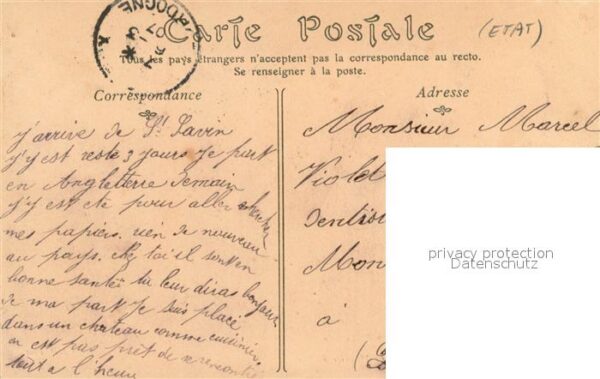 Carte Postale
(ETAT)
Tous les pays étrangers n'acceptent pas la correspondance au recto.
Se renseigner à la poste.
Correspondance
Adresse
j'arrive de St Savin
j'y est resté 3 jours Je part
en Angletterre demain
j'y est ete pour aller chercher
mes papiers. rien de nouveau
au pays. chez toi il sont en
bonne santé tu leur diras bonjour
de ma part Je suis placé
dans un chateau comme cuisinier
on est pas prêt de se rencontrer
tout a l'heure
Monsieur Marcel
Violet
dentis
Mon
à
privacy protection
Datenschutz